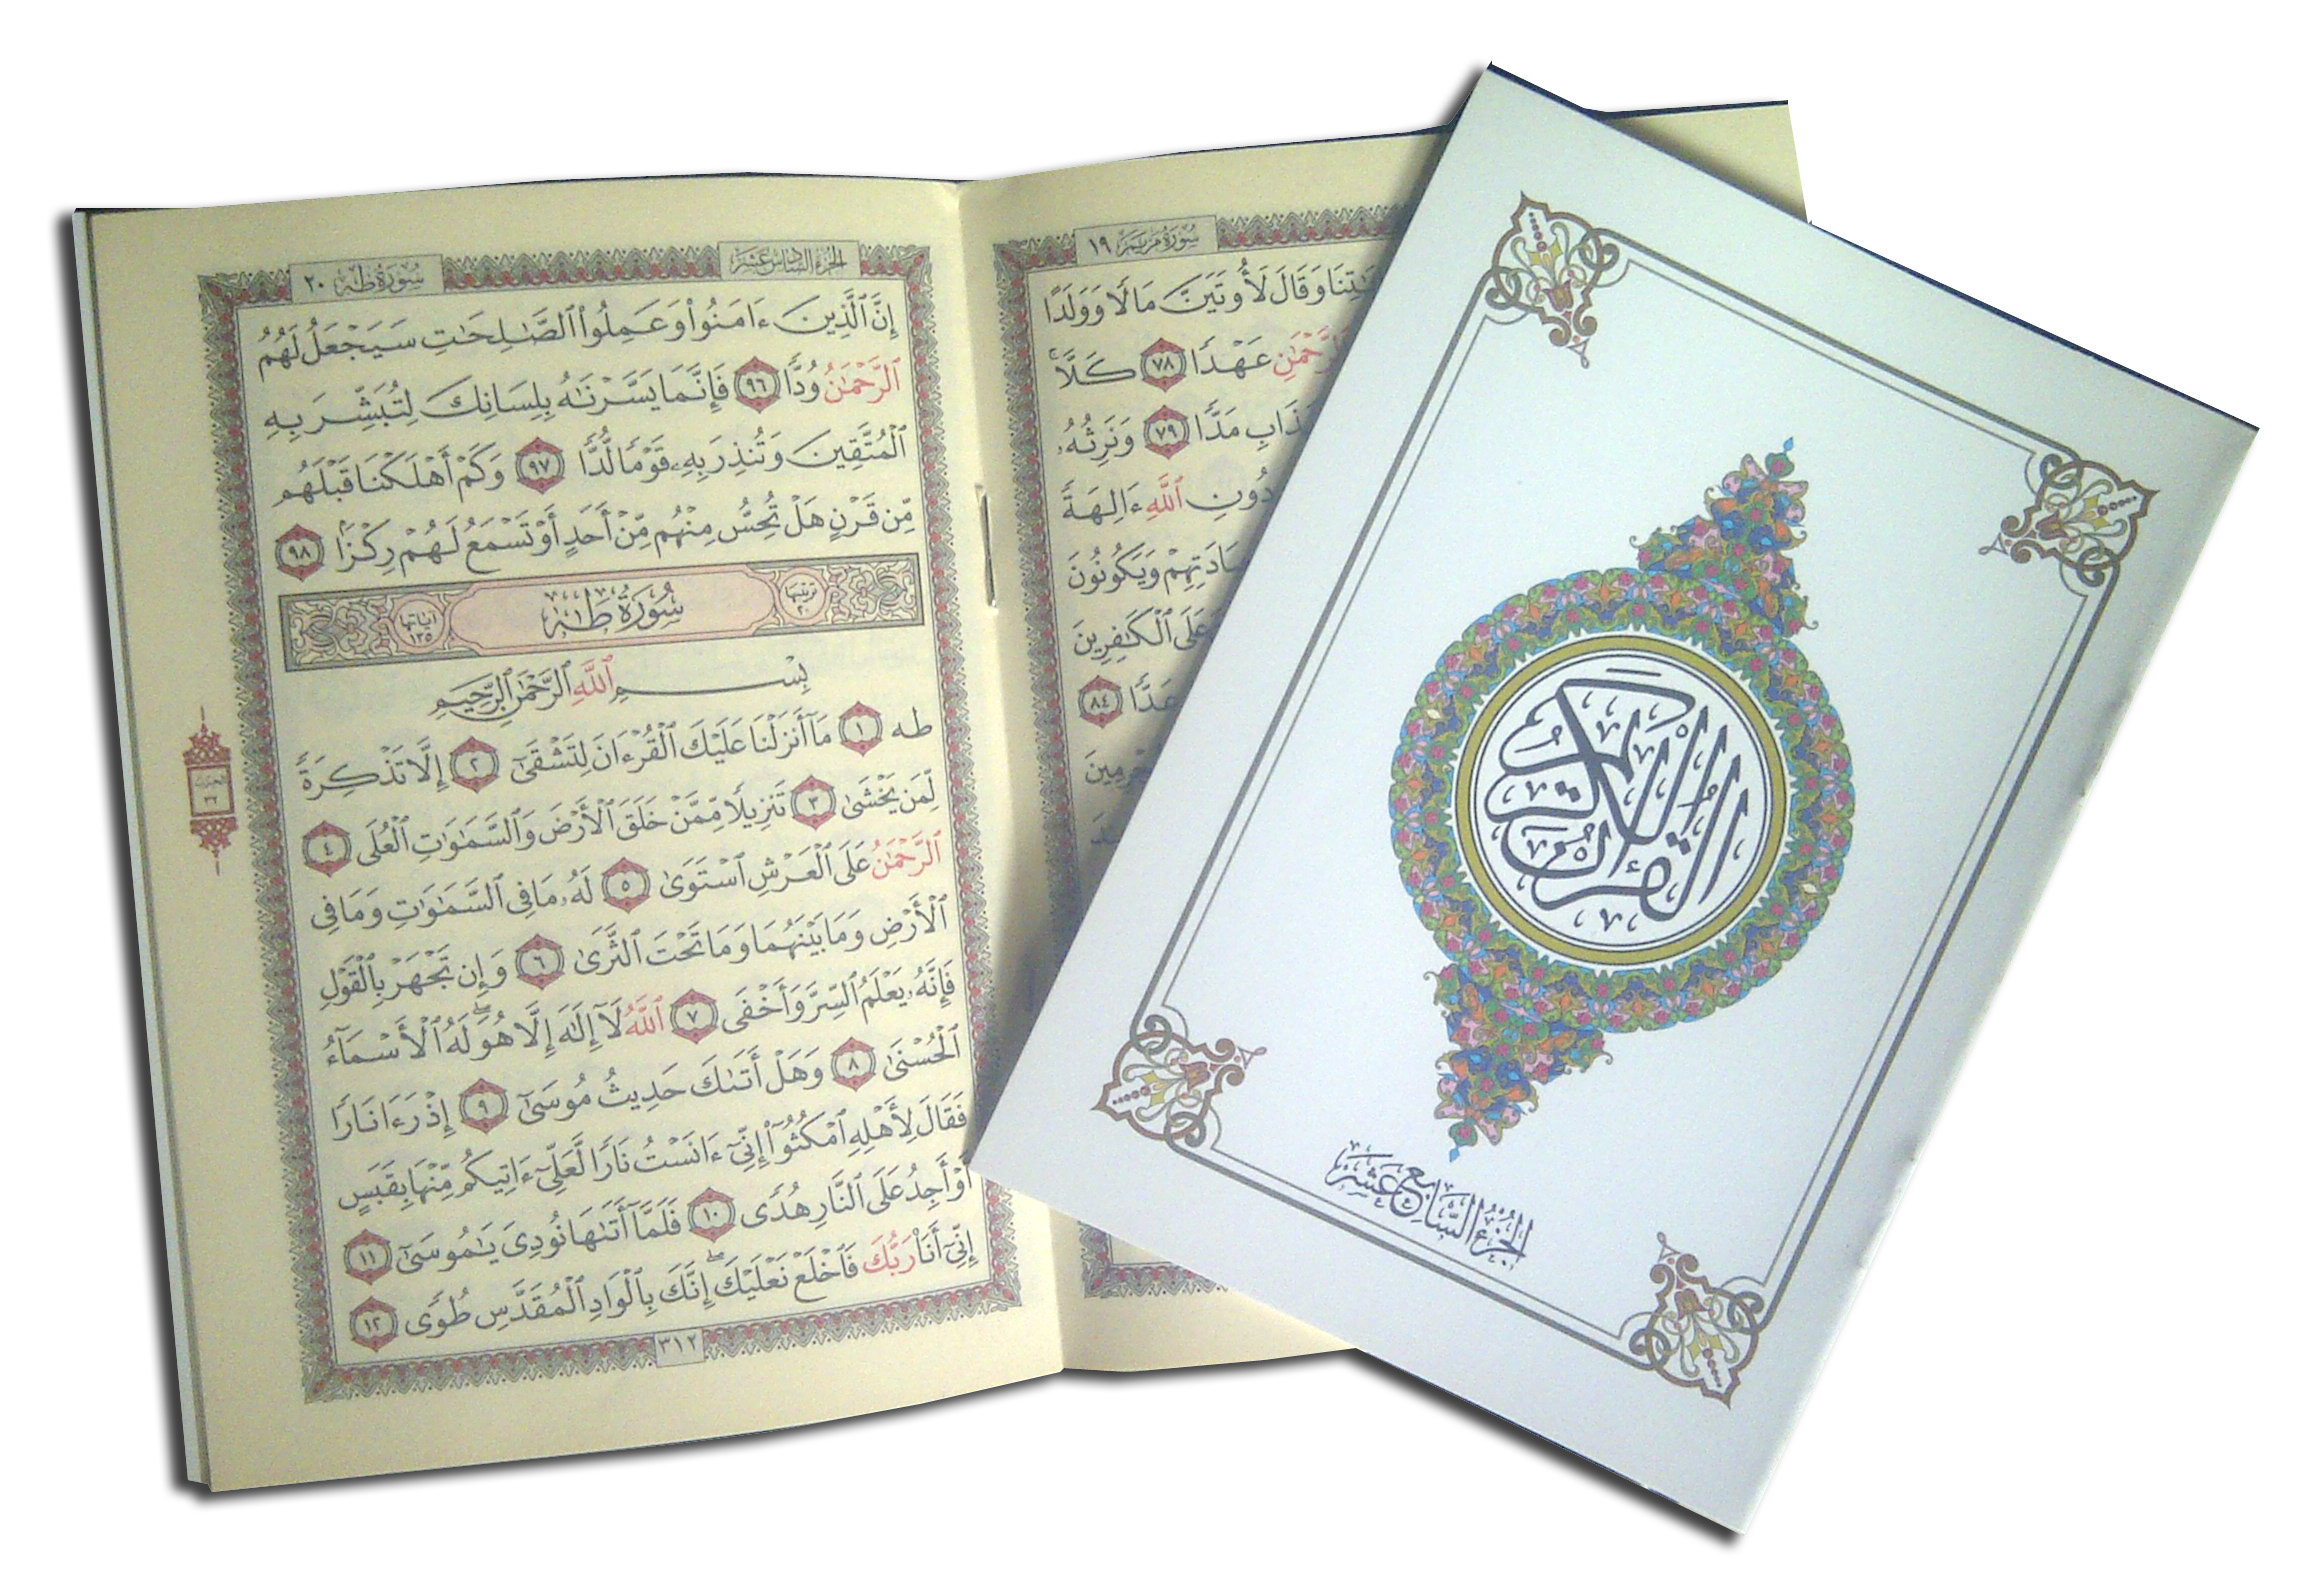 سُورَةُ مَرْيَمَ ١٩
وَقَالَ لَأُوتَيَنَّ مَالًا وَوَلَدًا
ٱلرَّحْمَٰنِ عَهْدًا ٧٨ كَلَّا
مَدًّا ٧٩ وَنَرِثُهُۥ
دُونِ ٱللَّهِ ءَالِهَةً
وَيَكُونُونَ
عَلَى ٱلْكَٰفِرِينَ
عَدًّا ٨٤
الجزء السادس عشر
سُورَةُ طه ٢٠
إِنَّ ٱلَّذِينَ ءَامَنُوا۟ وَعَمِلُوا۟ ٱلصَّٰلِحَٰتِ سَيَجْعَلُ لَهُمُ
ٱلرَّحْمَٰنُ وُدًّا ٩٦ فَإِنَّمَا يَسَّرْنَٰهُ بِلِسَانِكَ لِتُبَشِّرَ بِهِ
ٱلْمُتَّقِينَ وَتُنذِرَ بِهِۦ قَوْمًا لُّدًّا ٩٧ وَكَمْ أَهْلَكْنَا قَبْلَهُم
مِّن قَرْنٍ هَلْ تُحِسُّ مِنْهُم مِّنْ أَحَدٍ أَوْ تَسْمَعُ لَهُمْ رِكْزًۢا ٩٨
ترتيبها ٢٠ سُورَةُ طه آياتها ١٣٥
بِسْمِ ٱللَّهِ ٱلرَّحْمَٰنِ ٱلرَّحِيمِ
طه ١ مَآ أَنزَلْنَا عَلَيْكَ ٱلْقُرْءَانَ لِتَشْقَىٰٓ ٢ إِلَّا تَذْكِرَةً
لِّمَن يَخْشَىٰ ٣ تَنزِيلًا مِّمَّنْ خَلَقَ ٱلْأَرْضَ وَٱلسَّمَٰوَٰتِ ٱلْعُلَى ٤
ٱلرَّحْمَٰنُ عَلَى ٱلْعَرْشِ ٱسْتَوَىٰ ٥ لَهُۥ مَا فِى ٱلسَّمَٰوَٰتِ وَمَا فِى
ٱلْأَرْضِ وَمَا بَيْنَهُمَا وَمَا تَحْتَ ٱلثَّرَىٰ ٦ وَإِن تَجْهَرْ بِٱلْقَوْلِ
فَإِنَّهُۥ يَعْلَمُ ٱلسِّرَّ وَأَخْفَى ٧ ٱللَّهُ لَآ إِلَٰهَ إِلَّا هُوَ ۖ لَهُ ٱلْأَسْمَآءُ
ٱلْحُسْنَىٰ ٨ وَهَلْ أَتَىٰكَ حَدِيثُ مُوسَىٰٓ ٩ إِذْ رَءَا نَارًا
فَقَالَ لِأَهْلِهِ ٱمْكُثُوٓا۟ إِنِّىٓ ءَانَسْتُ نَارًا لَّعَلِّىٓ ءَاتِيكُم مِّنْهَا بِقَبَسٍ
أَوْ أَجِدُ عَلَى ٱلنَّارِ هُدًى ١٠ فَلَمَّآ أَتَىٰهَا نُودِىَ يَٰمُوسَىٰٓ ١١
إِنِّىٓ أَنَا۠ رَبُّكَ فَٱخْلَعْ نَعْلَيْكَ ۖ إِنَّكَ بِٱلْوَادِ ٱلْمُقَدَّسِ طُوًى ١٢
٣١٢
القرآن الكريم
الجزء السابع عشر